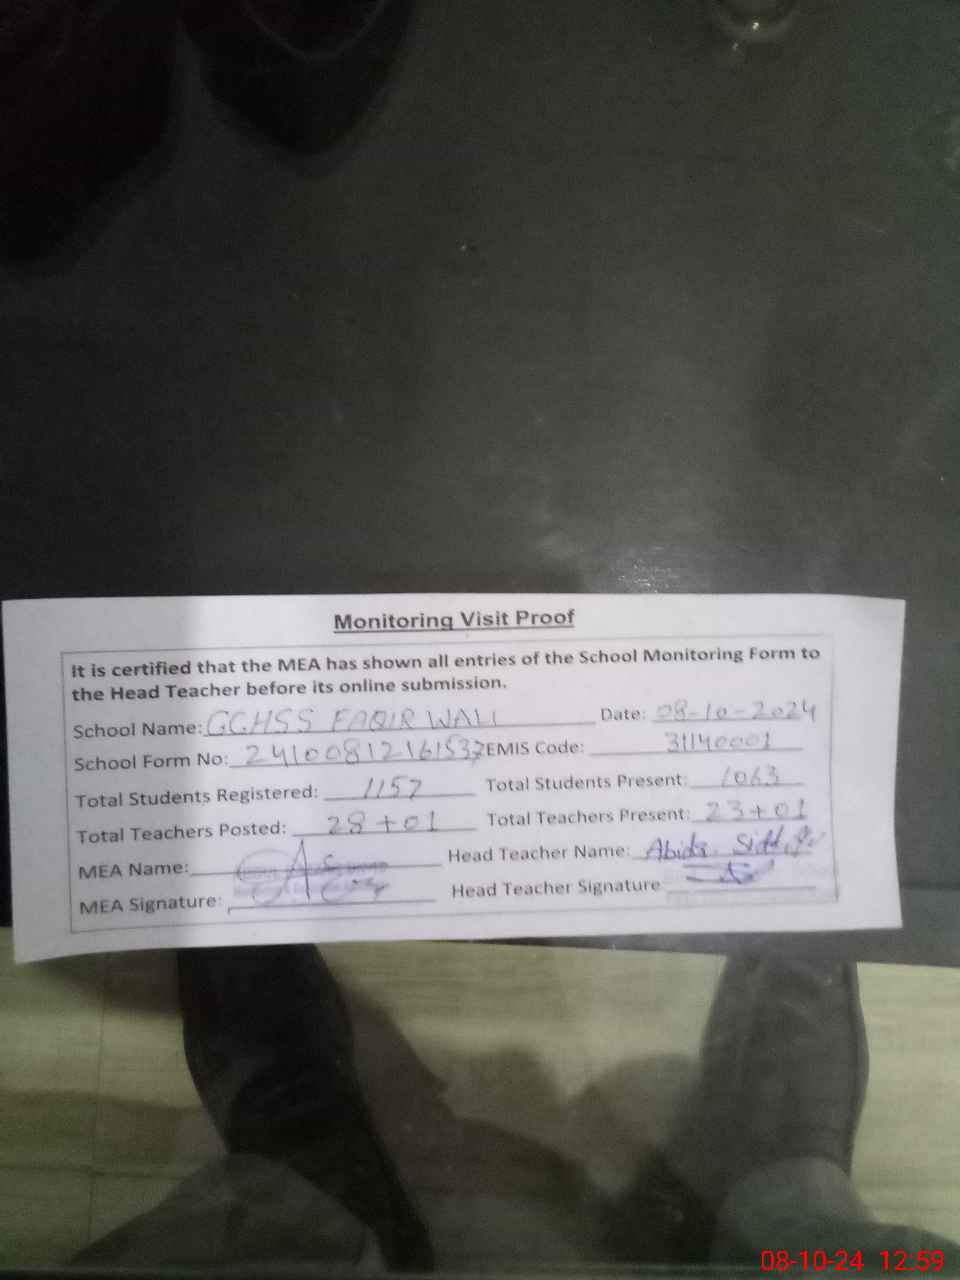 Monitoring Visit Proof
It is certified that the MEA has shown all entries of the School Monitoring Form to
the Head Teacher before its online submission.
School Name: GGHSS FAQIR WALI Date: 08-10-2024
School Form No: EMIS Code: 31140001
Total Students Registered: 1157 Total Students Present: 1063
Total Teachers Posted: 28+01 Total Teachers Present: 23+01
MEA Name: Head Teacher Name: Abida
MEA Signature: Head Teacher Signature
08-10-24 12:59